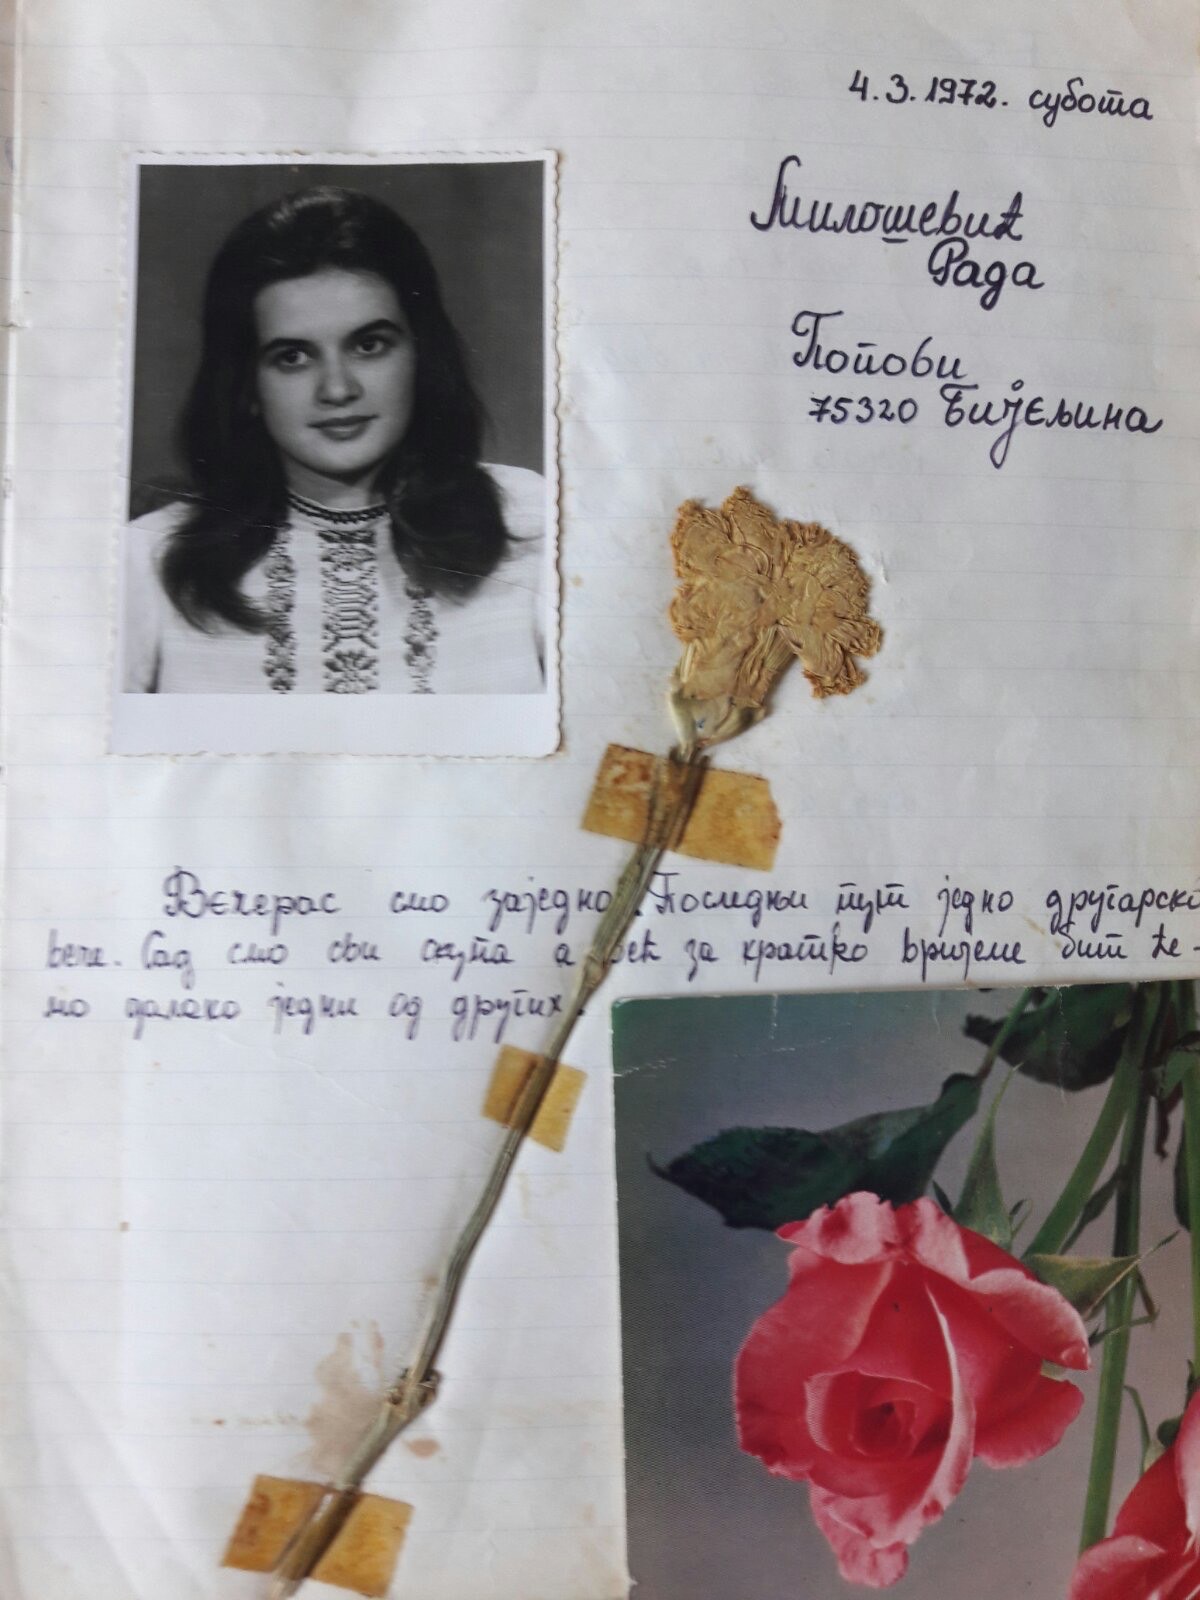 4.3.1972. субота
Милошевић
Рада
Попови
75320 Бијељина
Вечерас смо заједно. Последњи пут једно другарско
вече. Сад смо сви скупа а већ за кратко вријеме бит ће-
мо далеко једни од других.